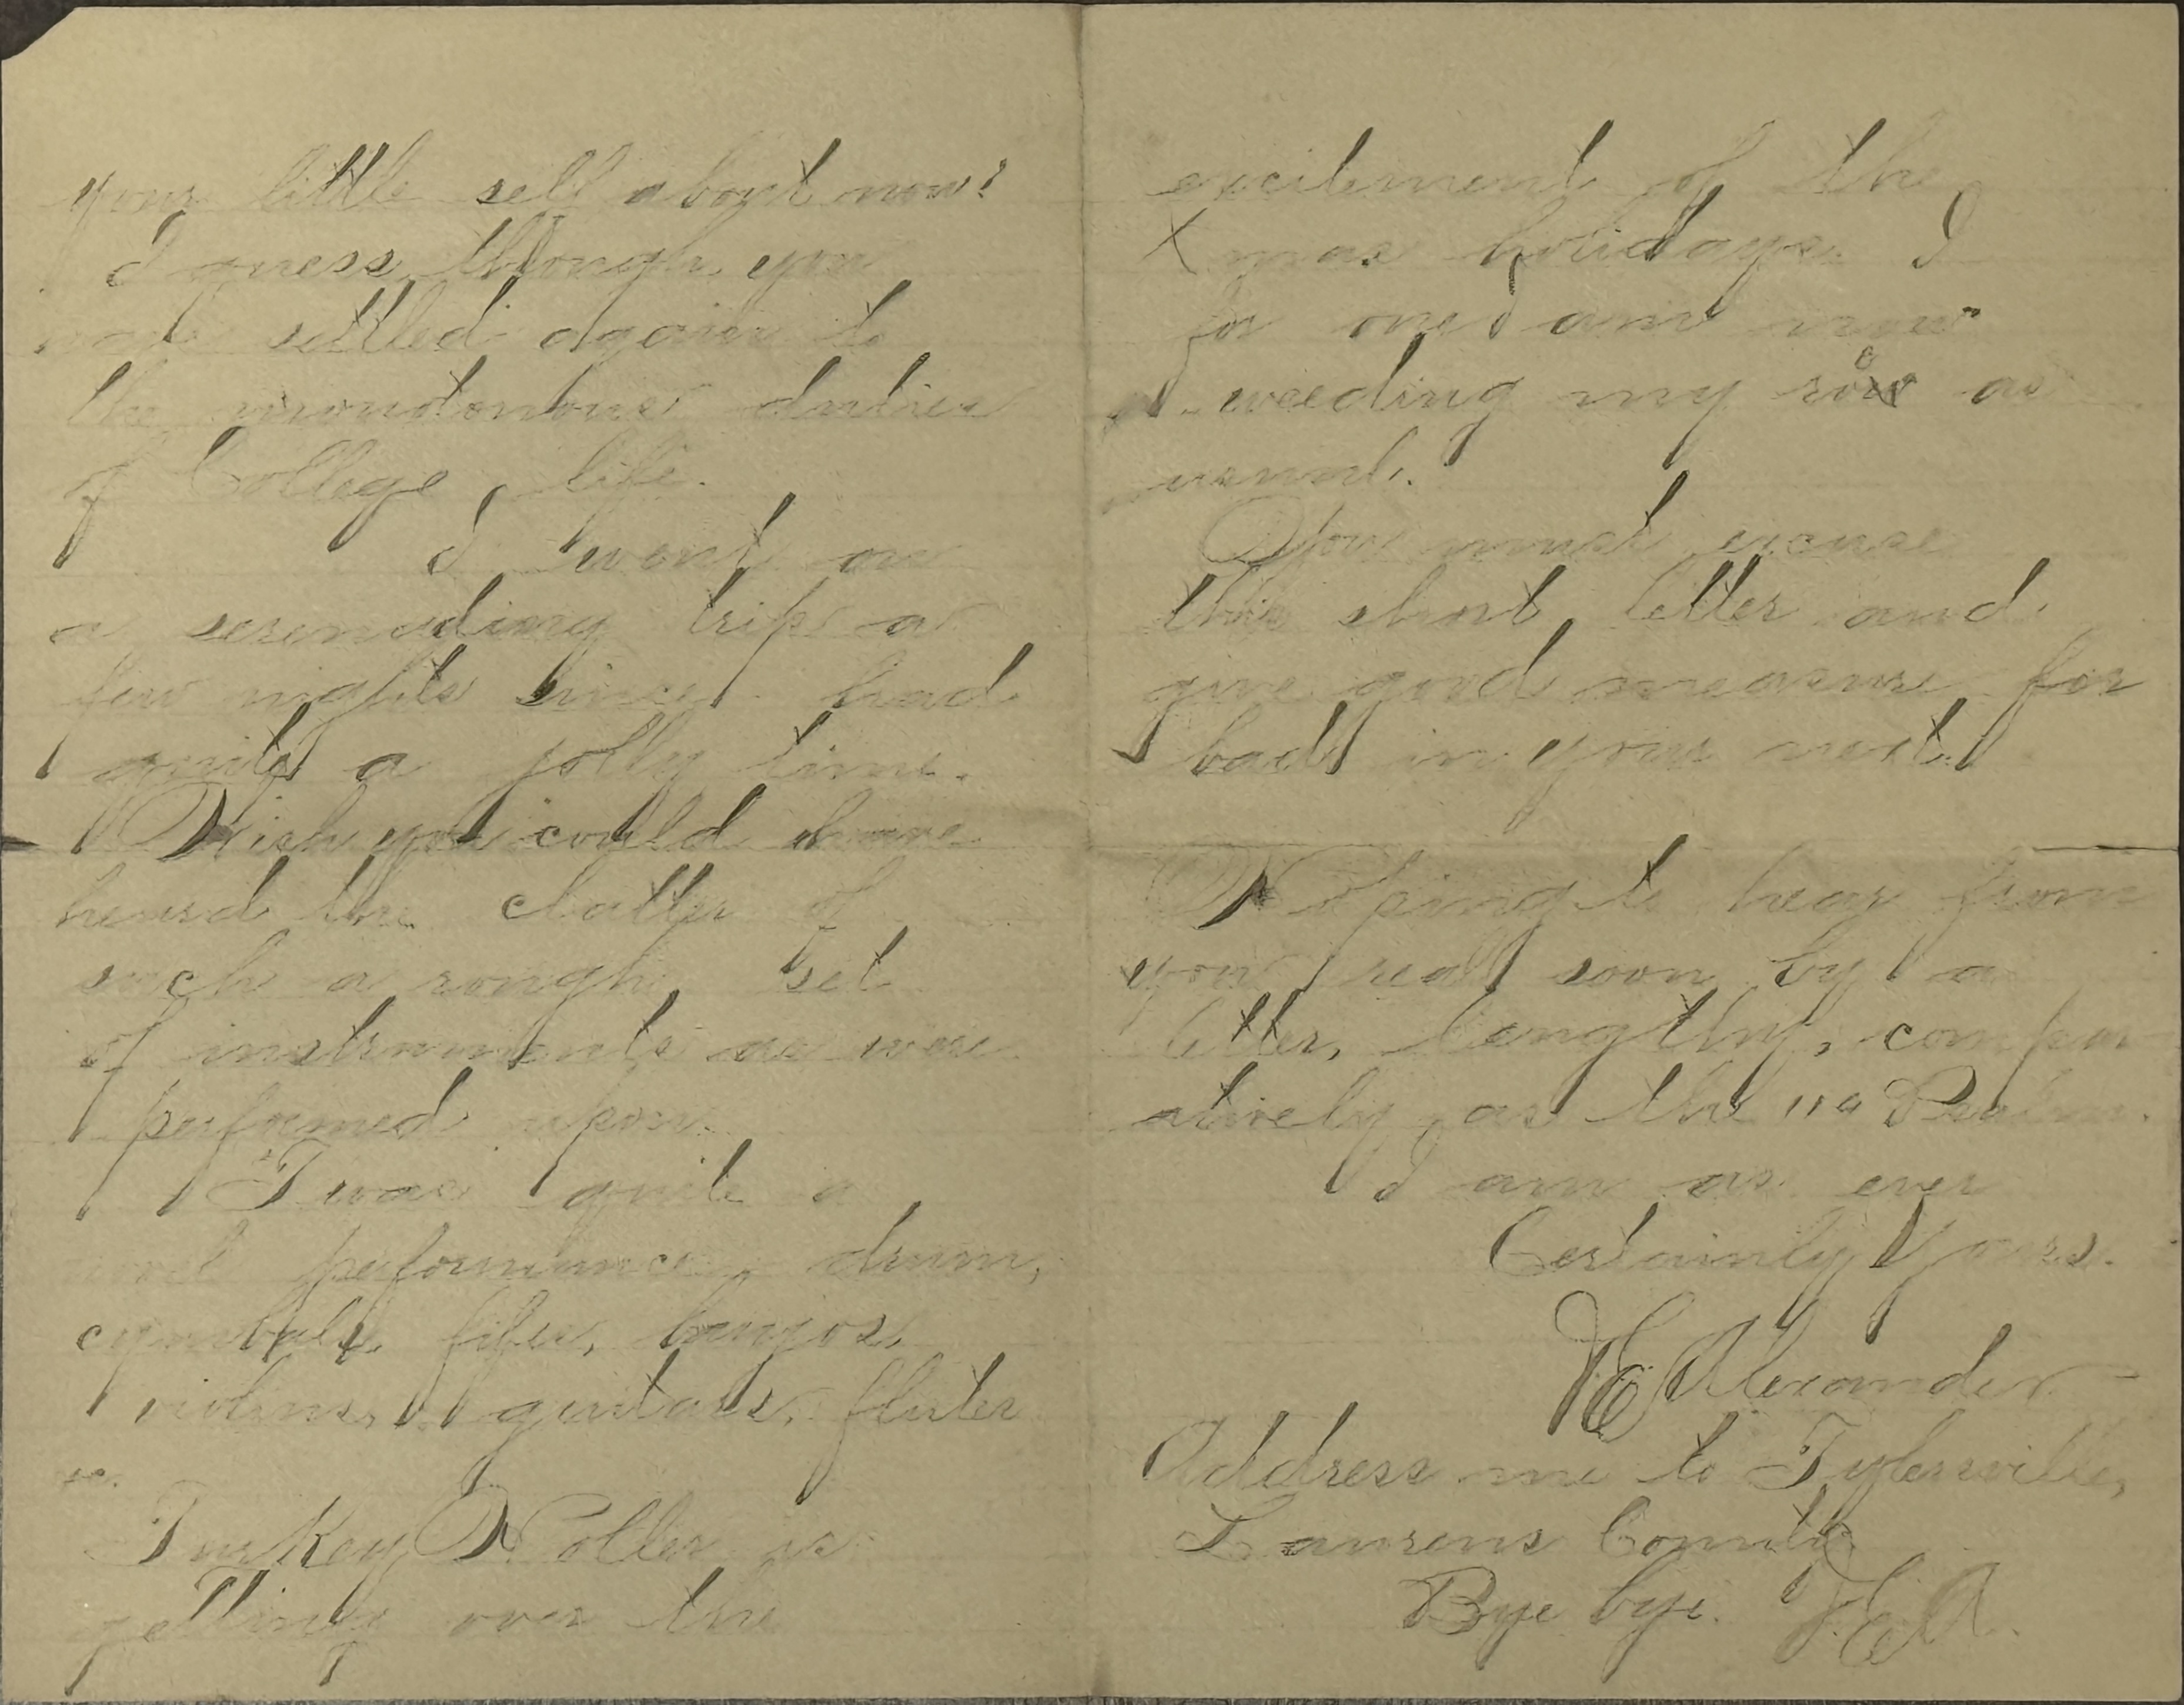 your little self about now?
I guess though you
are settled again to
the monotonous duties
of College life.
I went on
a serenading trip a
few nights since. had
quite a jolly time.
Wish you could have
heard the clatter of
such a rough set
of instruments as were
performed upon.
Twas quite a
performance, drum,
cymbals, fifes, banjos,
violins, guitars, flutes
&c.
Turkey Holler is
getting over the
excitement of the
Xmas holidays. I
for one am now
weeding my row as
usual.
You must excuse
this short letter and
give good measure for
bad in your next.
Hoping to hear from
you real soon by a
letter, lengthy, compar
atively, as the 119 Psalm.
I am as ever
Certainly Yours.
Alexander
Address me to Tylersville,
Laurens County
Bye bye. J.E.A.